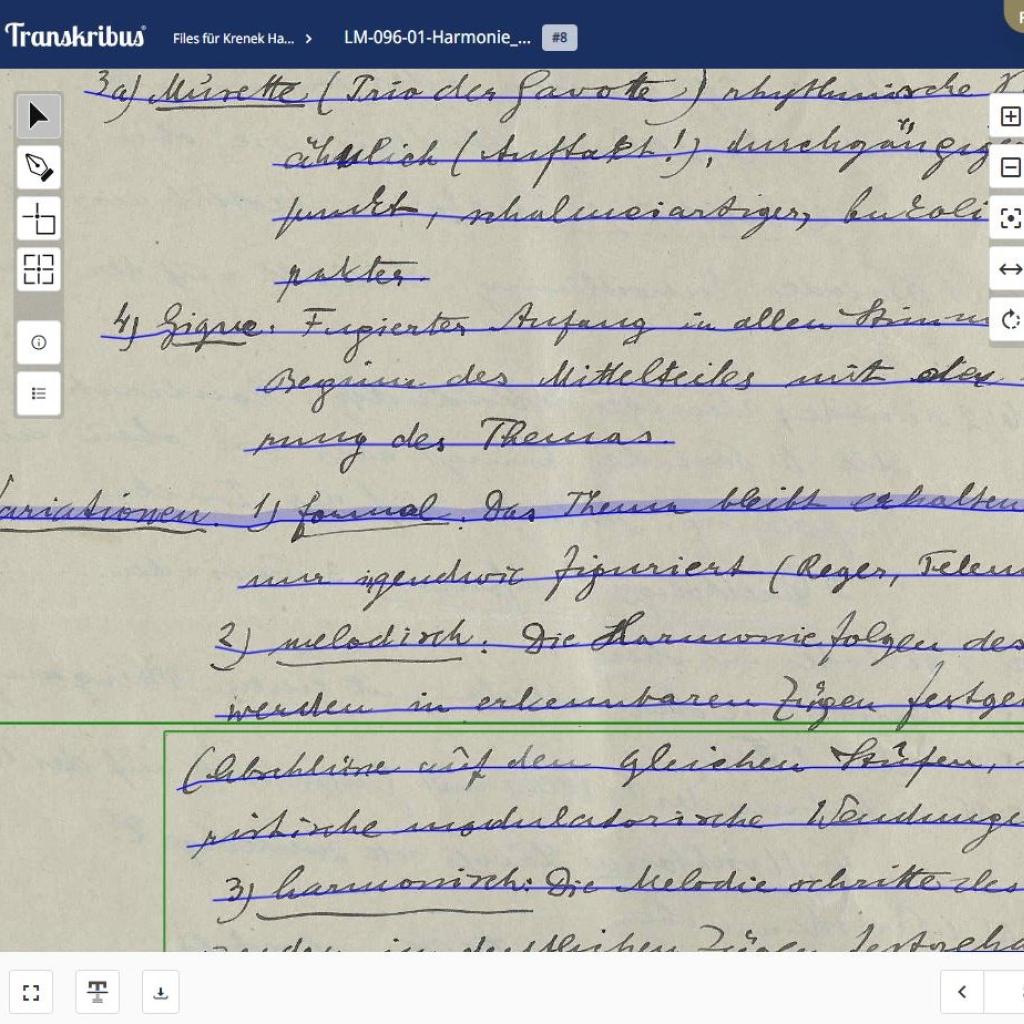 Transkribus® Files für Krenek Ha... > LM-096-01-Harmonie_... #8
3a) Müsette (Trio der Gavotte) rhythmische
ähnlich (Auftakt!), durchgängig
punkt, schalmeiartiger, bukoli
rakter.
4) Gigue. Fugierter Anfang in allen Stimm
Beginn des Mittelteiles mit der
rung des Themas.
Variationen. 1) formal. Das Thema bleibt erhalten
nur irgendwie figuriert (Reger, Telem
2) melodisch. Die Harmoniefolgen des
werden in erkennbaren Zügen festge
(Abschlüsse auf den gleichen Stufen,
ristische modulatorische Wendunge
3) harmonisch: Die Melodieschritte des
werden in deutlichen Zügen festgeha